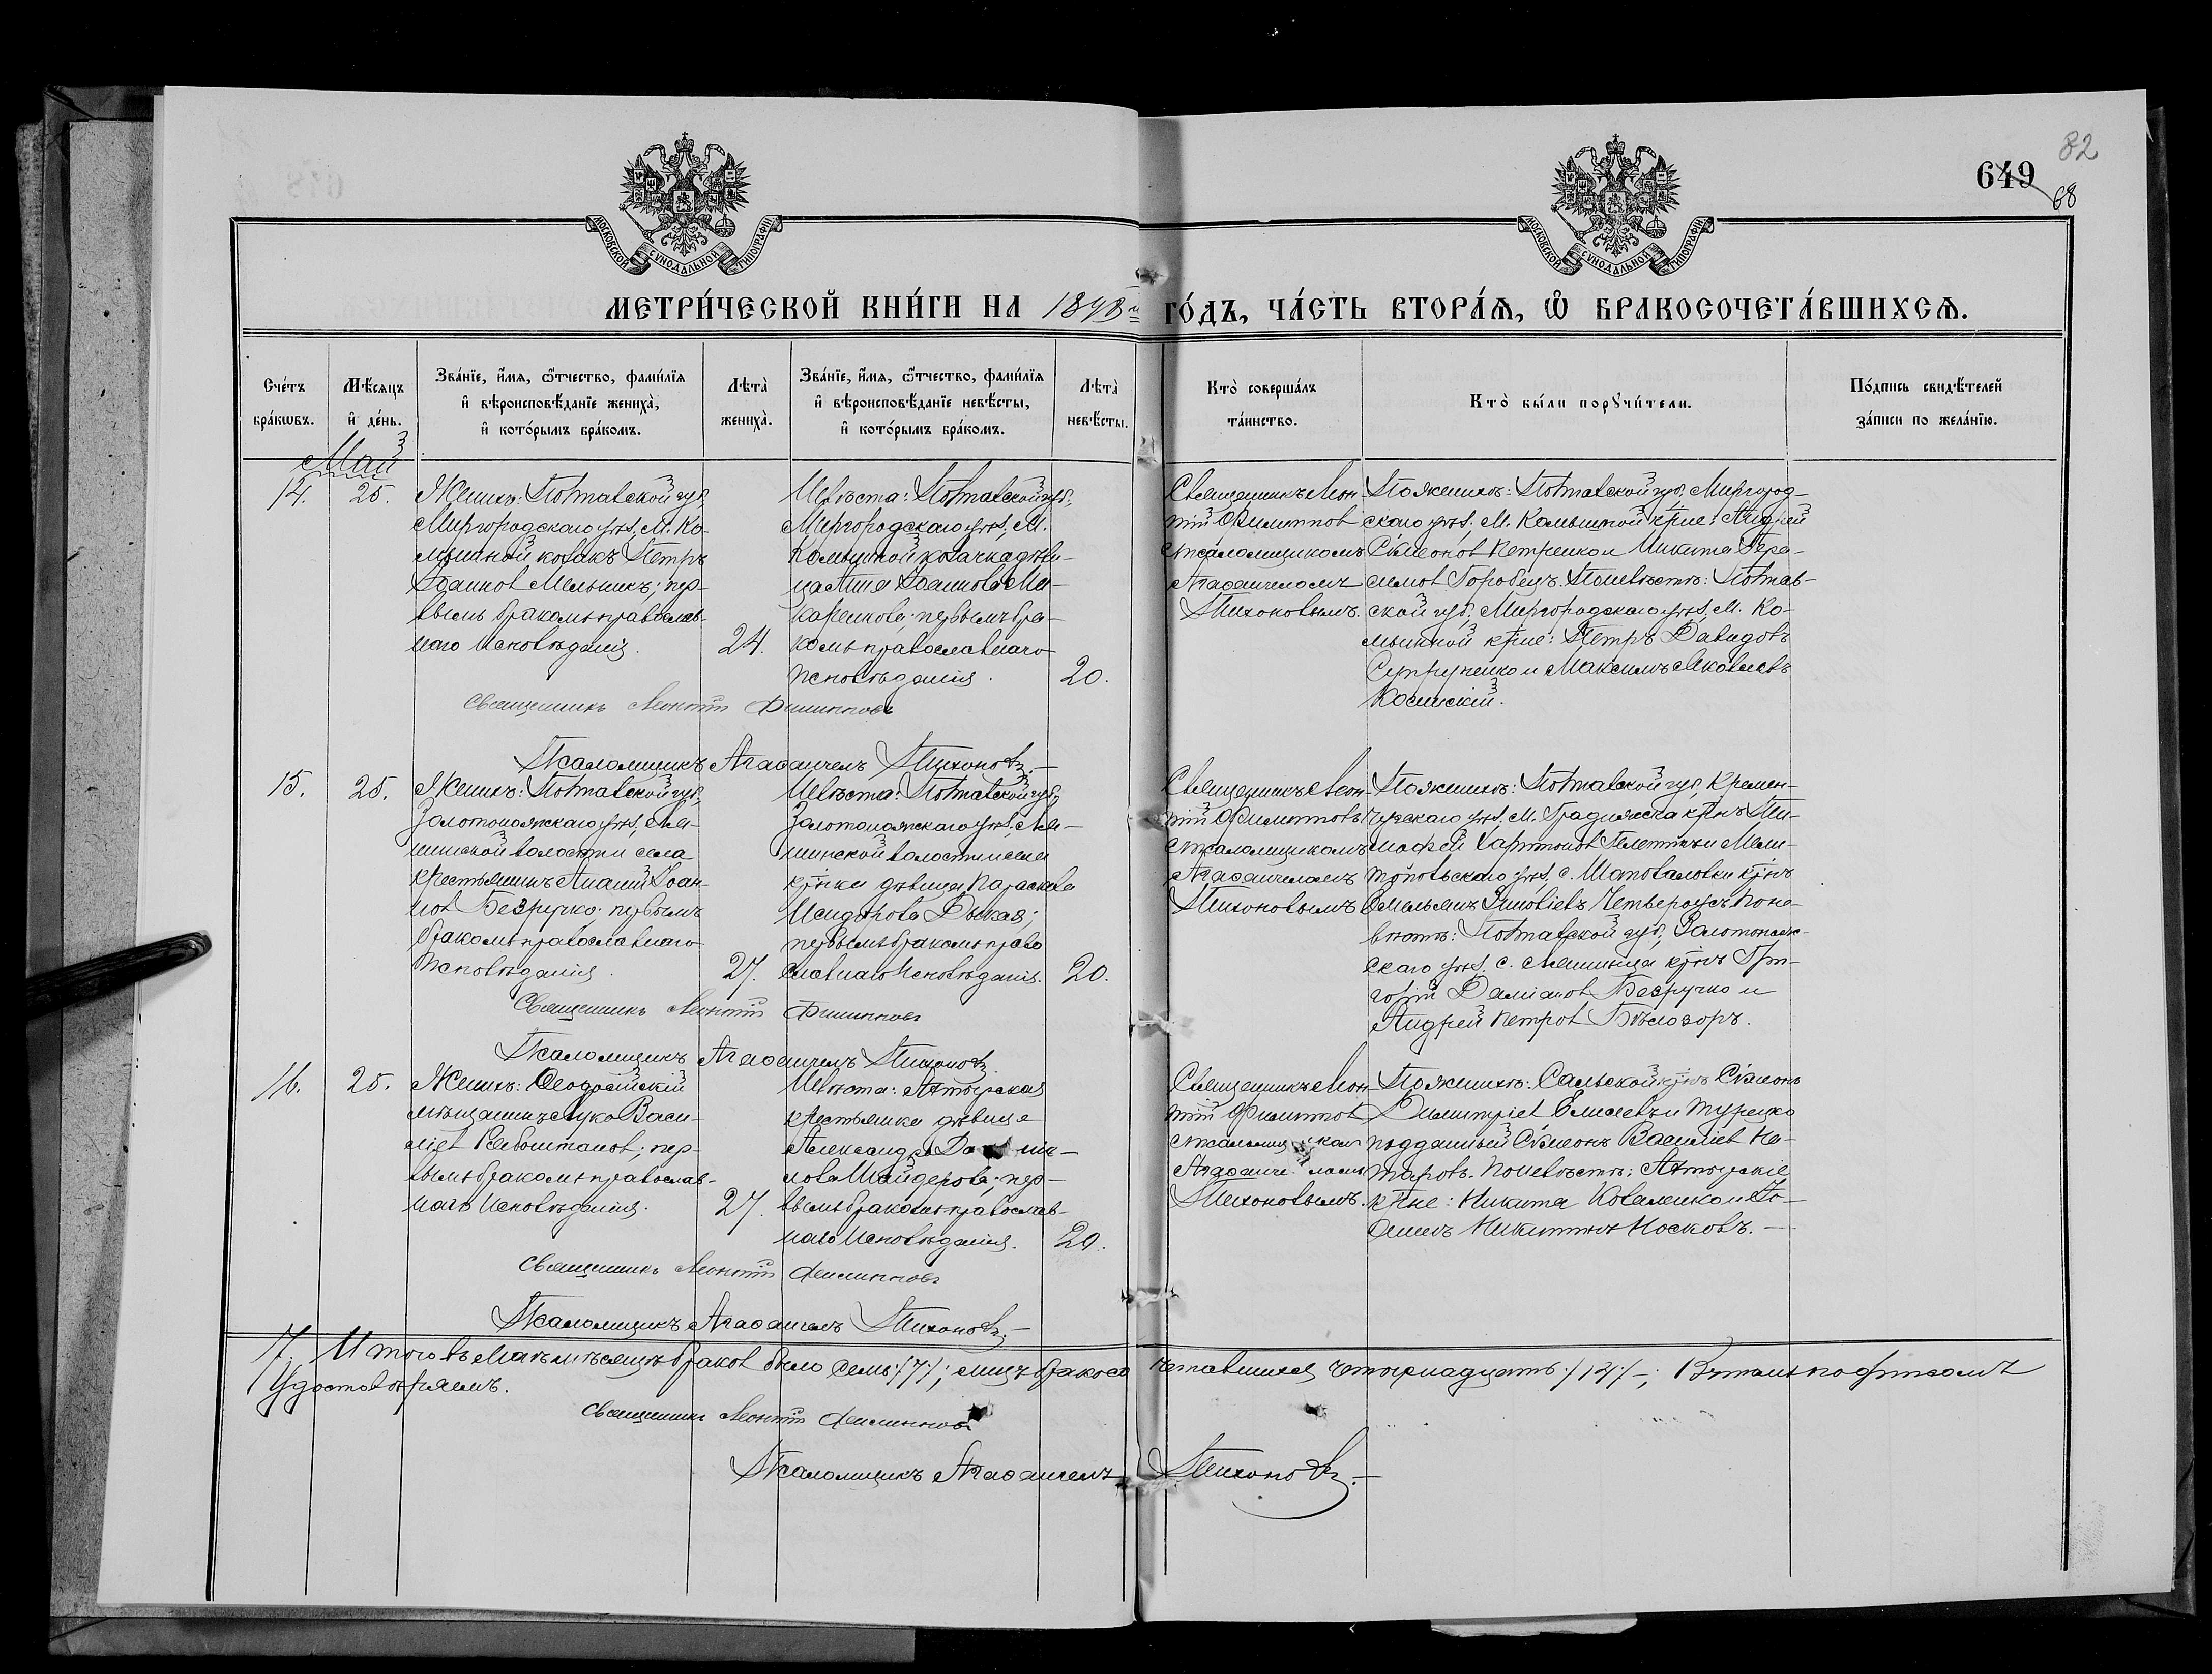 82
649
68
МОСКОВСКОЙ СѴНОДАЛЬНОЙ ТИПОГРАФІИ
МОСКОВСКОЙ СѴНОДАЛЬНОЙ ТИПОГРАФІИ
МЕТРИ́ЧЕСКОЙ КНИ́ГИ НА 1898 й ГО́ДЪ, ЧА́СТЬ ВТОРА́Ѧ, Ѽ БРАКОСОЧЕТА́ВШИХСѦ.
Сче́тъ бра́кѡвъ.
Мѣ́сяцъ и҆ де́нь.
Зва́нїе, и҆́мѧ, ѻ҆́тчество, фами́лїѧ
и҆ вѣроисповѣ́данїе женихà,
и҆ кото́рымъ бра́комъ.
Лѣтà женихà.
Зва́нїе, и҆́мѧ, ѻ҆́тчество, фами́лїѧ
и҆ вѣроисповѣ́данїе невѣ́сты,
и҆ кото́рымъ бра́комъ.
Лѣтà невѣ́сты.
Кто̀ соверша́лъ та́инство.
Кто̀ бы́ли порꙋчи́тели.
По́дпись свидѣ́телей за́писи по жела́нїю.
Май
14.
25.
Женихъ: Полтавской губ,
Миргородскаго уѣз, М. Ко-
мышной козакъ Петръ
Іоанновъ Мельникъ; пер-
вымъ бракомъ православ-
наго исповѣданія.
24.
Невѣста: Полтавской губ,
Миргородскаго уѣз, М.
Комышной козачка дѣви-
ца Анна Іоаннова Ма-
каренкова; первымъ бра-
комъ православнаго
исповѣданія.
20.
Священникъ Леон-
тій Филиппов
с псаломщикомъ
Агаѳангеломъ
Тихоновымъ.
По женихѣ: Полтавской губ, Миргород-
скаго уѣз, М. Комышной кр̃не: Андрей
Сѵмеонов Петренко и Никита Гера-
симов Горобецъ. По невѣстѣ: Полтав-
ской губ, Миргородскаго уѣз, М. Ко-
мышной кр̃не: Петръ Давидовъ
Супруненко и Максимъ Яковлевъ
Косинскій.
Священникъ Леонтій Филипповъ
Псаломщикъ Агаѳангелъ Тихоновъ.—
15.
25.
Женихъ: Полтавской губ,
Золотоношскаго уѣз,
волости села
крестьянинъ Ананій Іоан-
нов Безручко; первымъ
бракомъ православнаго
исповѣданія.
27.
Невѣста: Полтавской губ,
Золотоношскаго уѣз,
волости села
кр̃нка дѣвица Параскева
Исидорова Дикая;
первымъ бракомъ право
славнаго исповѣданія.
20.
Священникъ Леон-
тій Филипповъ
с псаломщикомъ
Агаѳангеломъ
Тихоновымъ
По женихѣ: Полтавской губ, Кремен-
чугскаго уѣз. М. Градижска кр̃нъ Ти-
моѳей Харитонов и Мели-
топольскаго уѣз, с. Шаповаловки кр̃нъ
Емельянъ Зиновіевъ Четвероусъ. По не-
вѣстѣ: Полтавской губ, Золотонош-
скаго уѣз. с. кр̃нъ Гри-
горій Даміанов Безручко и
Андрей Петров Бѣлозоръ.
Священникъ Леонтій Филипповъ
Псаломщикъ Агаѳангелъ Тихоновъ.
16.
25.
Женихъ: Ѳеодосійскій
мѣщанинъ Лука Васи-
ліев; пер-
вымъ бракомъ православ-
наго исповѣданія.
27.
Невѣста:
крестьянка дѣвица
Александра
Шайдерова; пер-
вымъ бракомъ православ-
наго исповѣданія.
20.
Священникъ Леон-
тій Филиппов
с псаломщикомъ
Агаѳангеломъ
Тихоновымъ.
По женихѣ: Сальской кр̃нъ Сѵмеонъ
Димитріев Елисеевъ и турецко
подданный Сѵмеонъ Василіев Но-
таровъ. По невѣстѣ:
кр̃не: Никита Коваленко и Іо-
аннъ Никитинъ Носковъ.—
Священникъ Леонтій Филипповъ
Псаломщикъ Агаѳангелъ Тихоновъ.—
7. Итого въ Маѣ мѣсяцѣ браков было семь /7/; лицъ бракосо четавшихся четырнадцать /14/ —; В томъ подписомъ
удостовѣряемъ.
Священникъ Леонтій Филипповъ
Псаломщикъ Агаѳангелъ Тихоновъ.—